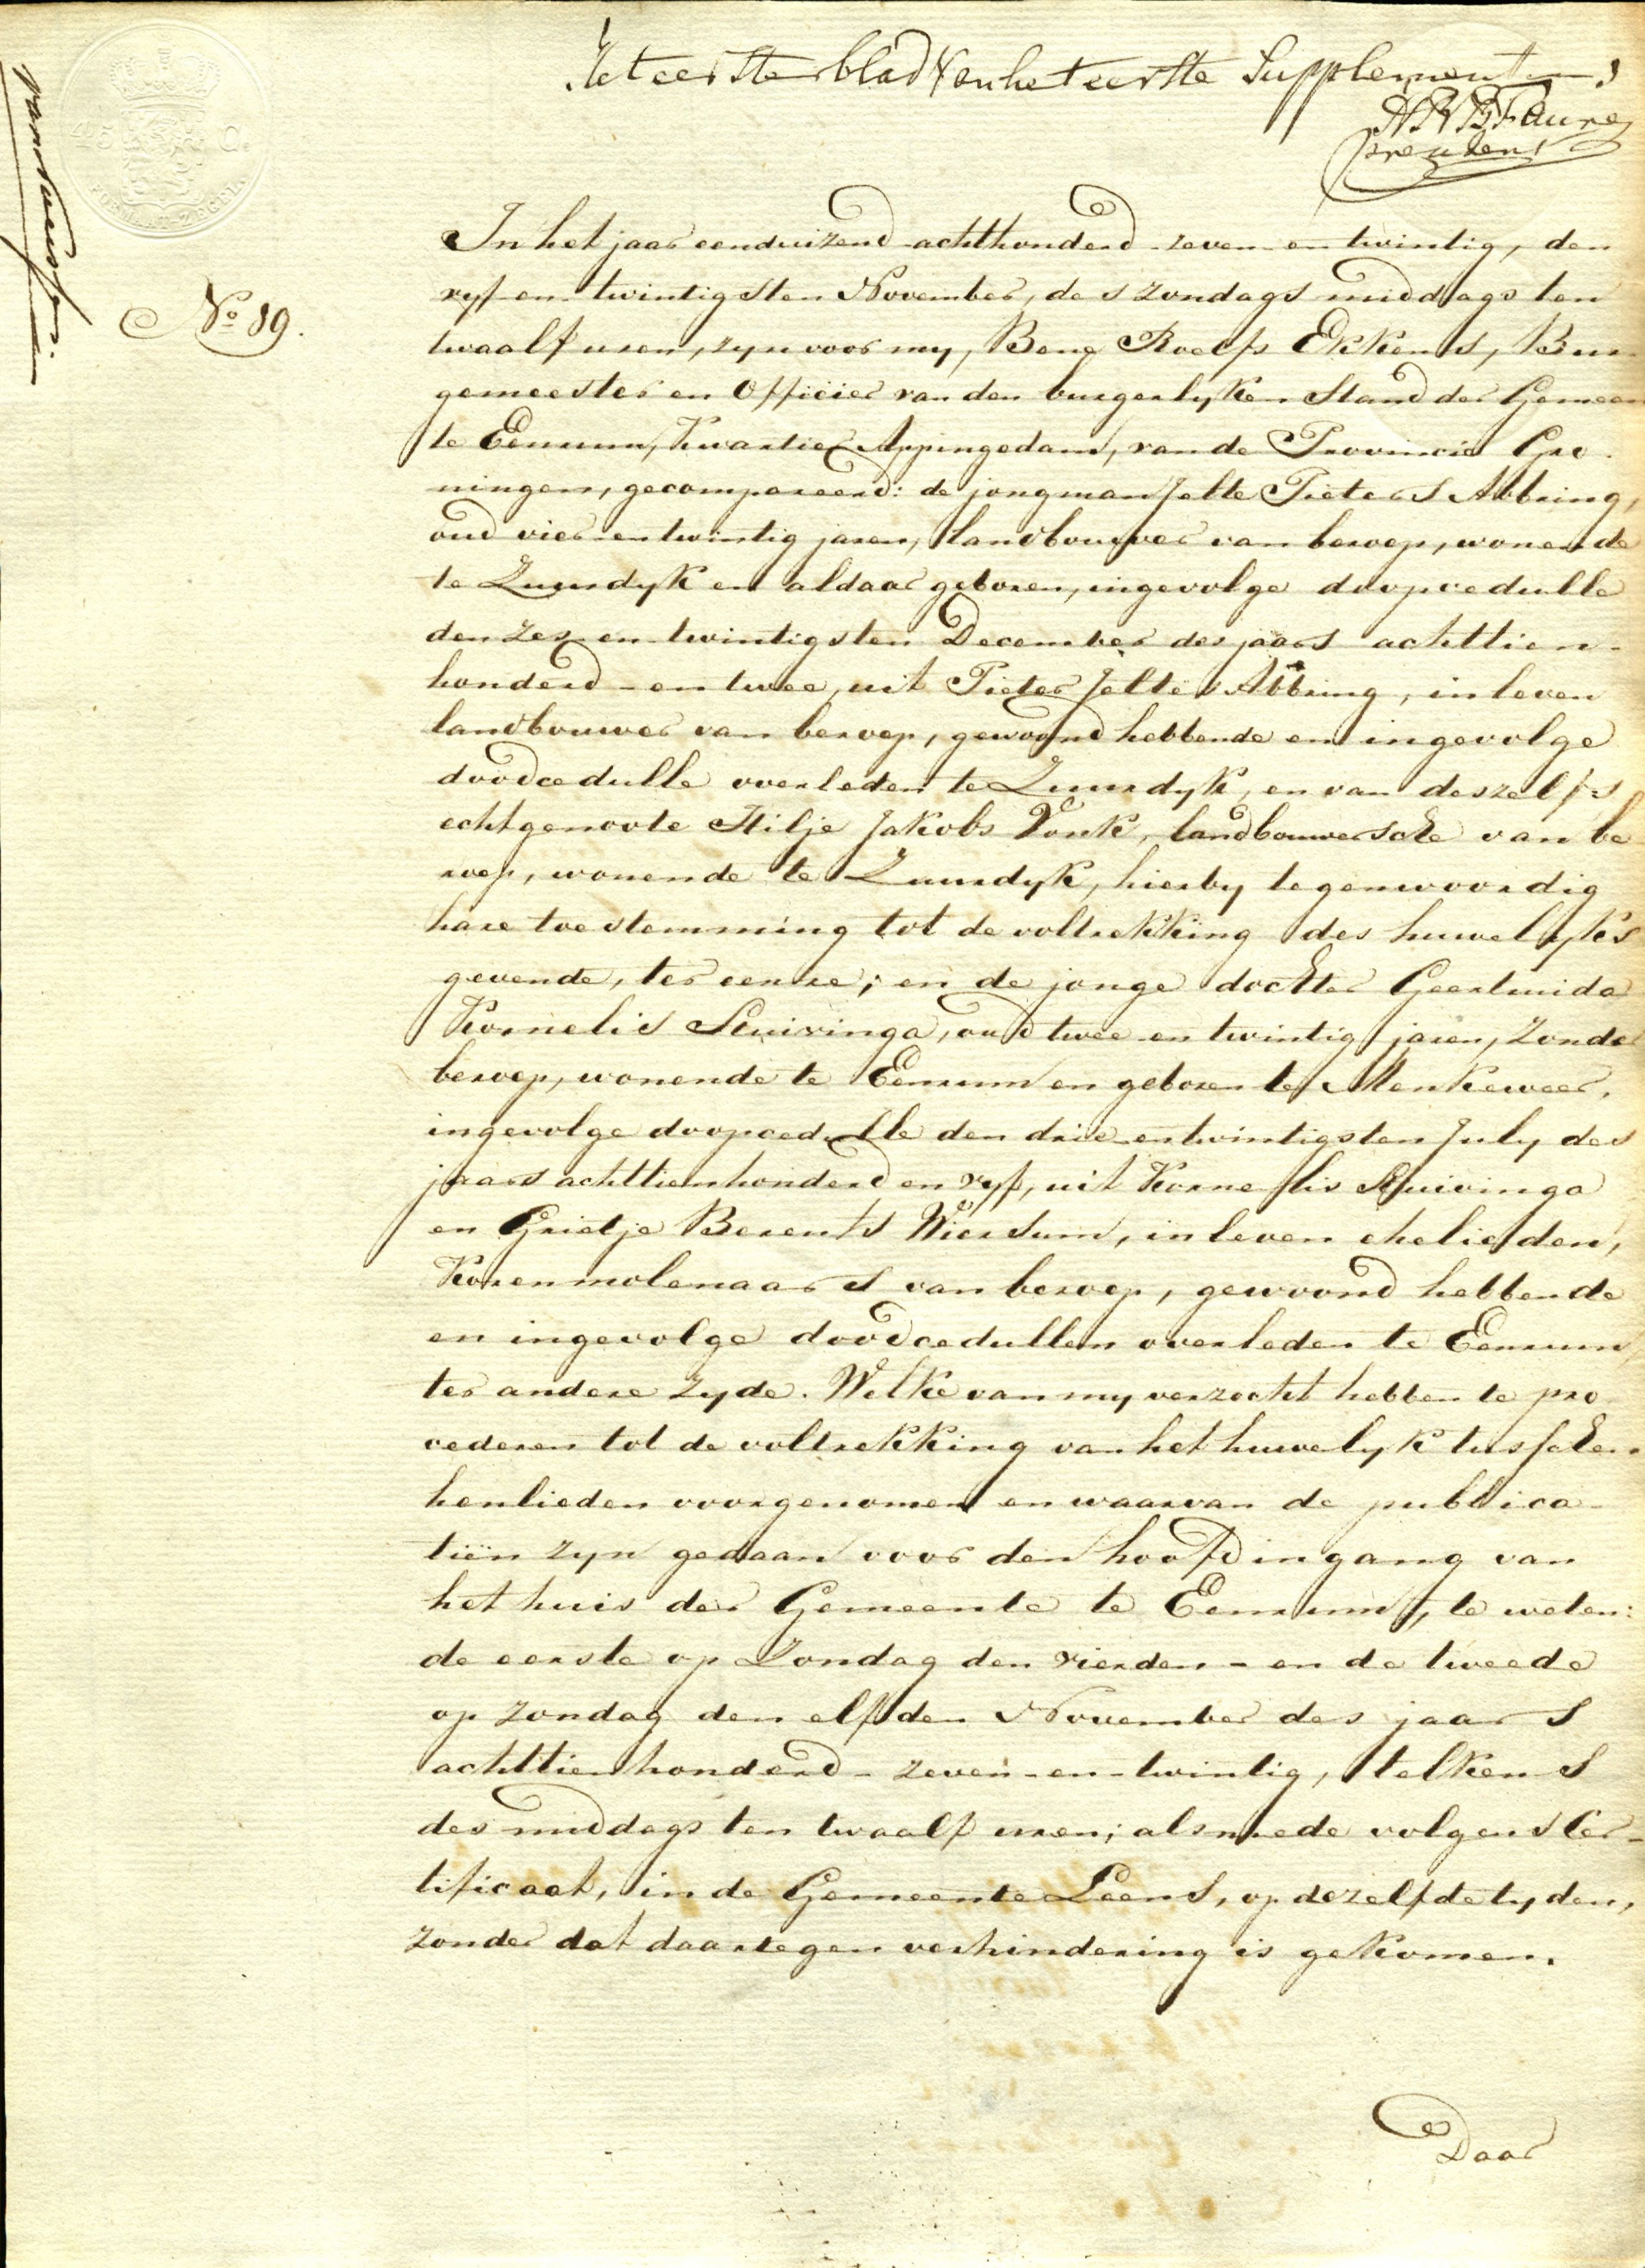 Het eerste blad van het eerste Supplement
HWBFaure
president
45 C.
FORMAAT ZEGEL
No 19.
In het jaar eenduizend achthonderd zeven en twintig, den
vyf en twintigsten November, des zondags middags ten
twaalf uren, zyn voor my, Bene Roelfs Ekkens, Bur-
gemeester en Officier van den burgerlyken Stand der Gemeen
te Eenrum, Kwartier Appingedam, van de Provincie Gro-
ningen, gecompareerd: de jongman Jelte Pieters Abbring,
oud vier en twintig jaren, landbouwer van beroep, wonende
te Zuurdyk en aldaar geboren, ingevolge doopcedulle
den zes en twintigsten December des jaars achttien-
honderd-en twee, uit Pieter Jeltes Abbring, in leven
landbouwer van beroep, gewoond hebbende en ingevolge
doodcedulle overleden te Zuurdyk, en van deszelfs
echtgenoote Hilje Jakobs Vonk, landbouwersche van be
roep, wonende te Zuurdyk, hierby tegenwoordig
hare toestemming tot de voltrekking des huwelyks
gevende, ter eenre; en de jonge dochter Geertruida
Kornelis Sluivinga, oud twee en twintig jaren, zonder
beroep, wonende te Eenrum en geboren te Menkeweer,
ingevolge doopcedulle den drie entwintigsten July des
jaars achttienhonderd en vyf, uit Kornelis Sluivinga
en Grietje Berents Wiersum, in leven ehelieden,
Korenmolenaars van beroep, gewoond hebbende
en ingevolge doodcedullen overleden te Eenrum
ter andere zyde. Welke van my verzocht hebben te pro
cederen tot de voltrekking van het huwelyk tusschen
henlieden voorgenomen en waarvan de publica-
tiën zyn gedaan voor den hoofdingang van
het huis der Gemeente te Eenrum, te weten:
de eerste op Zondag den vierden - en de tweede
op zondag den elfden November des jaars
achttienhonderd - zeven - en - twintig, telkens
des middags ten twaalf uren; alsmede volgens Cer-
tificaat, in de Gemeente Leens, op dezelfde tyden,
zonder dat daartegen verhindering is gekomen.
Daar